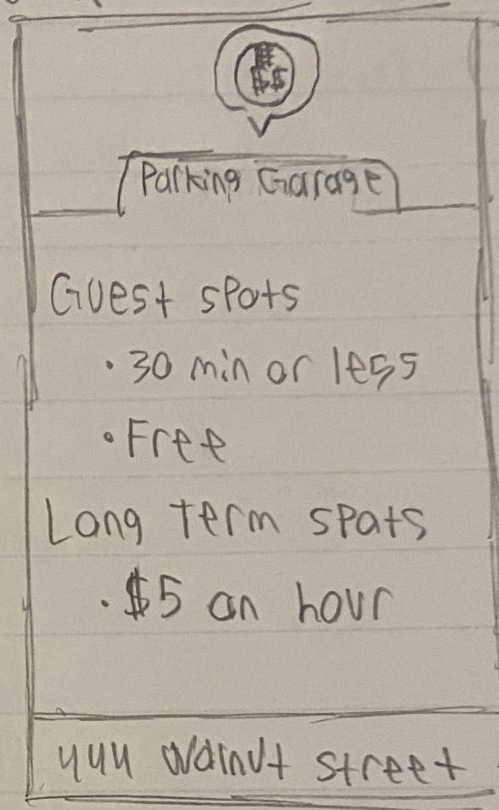 $$
Parking Garage
Guest spots
· 30 min or less
· Free
Long Term spots
· $5 an hour
444 Walnut street